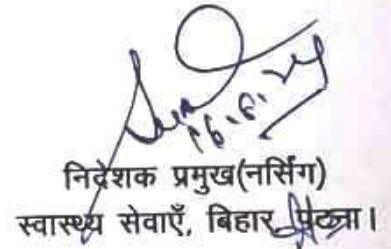 16.8.24
निदेशक प्रमुख(नर्सिंग)
स्वास्थ्य सेवाएँ, बिहार, पटना।